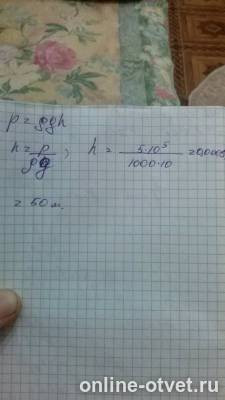 p = ρgh
h = p/ρg ; h = 5·10⁵/1000·10 =
= 50 м.
online-otvet.ru